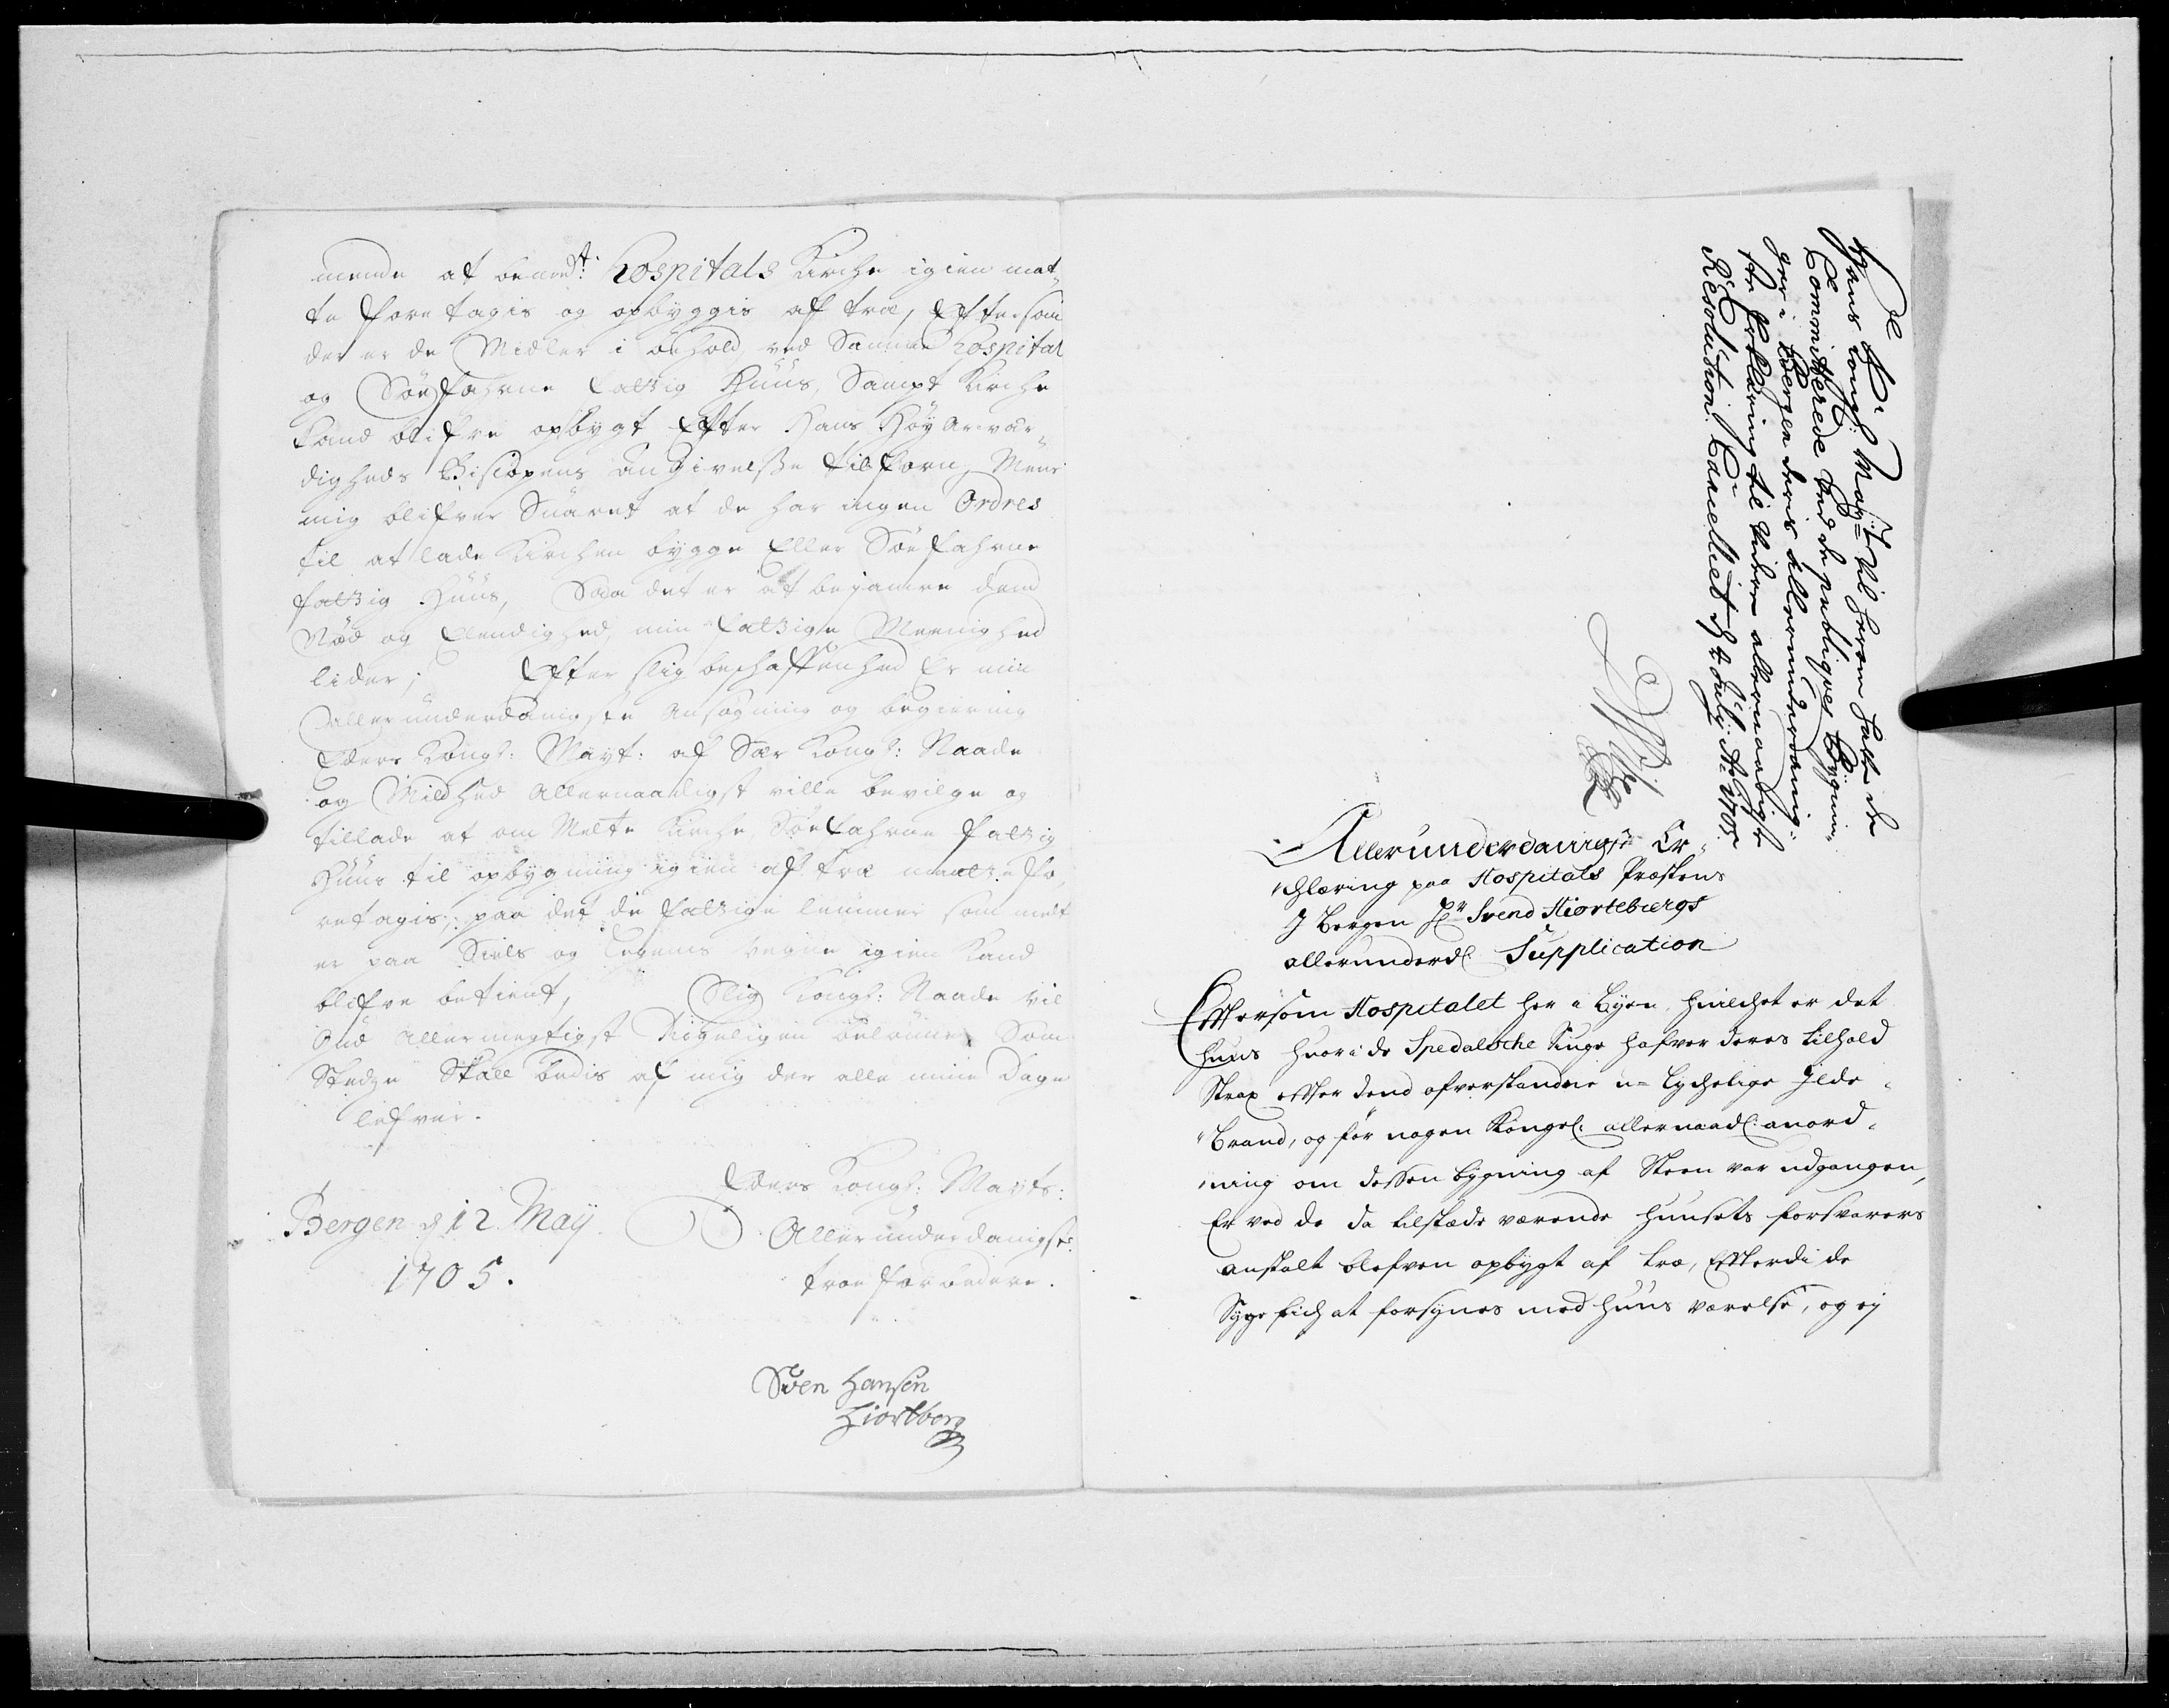 mende at bemelt: Hospitals Kirche igien mat-
te foretagis og opbyggis af træ, Eftersom
der er de Midler i behold ved Samme Hospital
og Søefahrne Fattig Huus, Sampt Kirche
Kand blifve opbygt Efter Hans Høy Ærvær-
digheds Biscopens Angivelsse tilforn, Mens
mig blifver Suaret at de har ingen Ordres
til at lade Kirchen bygge Eller Søefahrne
fattig Huus, Saa det er at bejamre dend
Nød og Elendighed, min Fattige Meenighed
lider; Efter slig beschaffenhed Er min
Allerunderdanigste Ansøgning og begiering
Eders Kongl: Mayt: af Sær Kongl: Naade
og Mildhed Allernaadigst ville bevilge og
tillade at om Melte Kirche, Søefahrne fattig
Huus til opbygning igien af træ maatte fo-
retagis, paa det de fattige lemmer som melt
er paa Siels og Legems vegne igien Kand
blifve betient, Slig Kongl: Naade vil
Gud Allermegtigst Rigeligen belønne, Som
Stedze Skall bedis af mig der alle mine Dage
lefver.
Eders Kongl: Mayts:
Bergen d 12 Maÿ
Allerunderdanigste
1705.
troe forbedere.
Sven Hansen
Hiortberg
Hans Kongl: Mayst: vil herom hafve de
Committerede ved de publiqves Bygnin-
ger i Bergen deris allerunderdanig-
ste Erklæring til videre allernaadigste
Resolution. Cancelliet d 4 Julij Ao 1705.
Allerunderdanigste Er-
klæring paa Hospitals Præstens
I Bergen Hr Svend Hiortebergs
allerunderd: Supplication
Eftersom Hospitalet her i Byen, hvilchet er det
huus hvor i de Spedalsche Siuge hafver deres tilhold
Strax efter dend ofverstandne u-lychelige Ilde-
brand, og før nogen Kongel: allernaad: anord-
ning om dessen bygning af Steen var udgangen,
Er ved de da tilstæde værende huusets forsvarers
anstalt blefven opbygt af træ, Efterdi de
Syge fich at forsynes med huus værelse, og ej